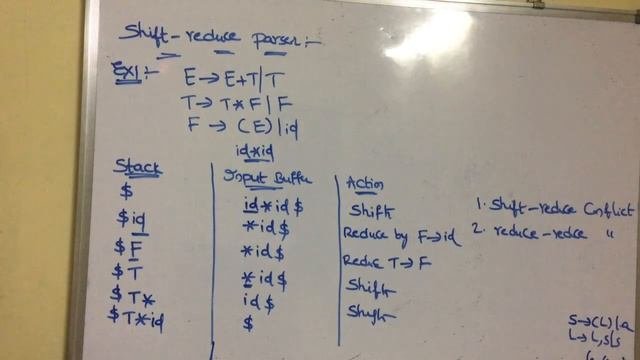 Shift-reduce parser:-
Ex1:-
E→E+T|T
T→T*F|F
F→(E)|id
id*id
Stack Input Buffer Action
$ id*id$ Shift
$id *id$ Reduce by F→id
$F *id$ Reduce T→F
$T *id$ Shift
$T* id$ Shift
$T*id $
1. Shift-reduce Conflict
2. reduce-redce "
S→(L)|a
L→L,S|S